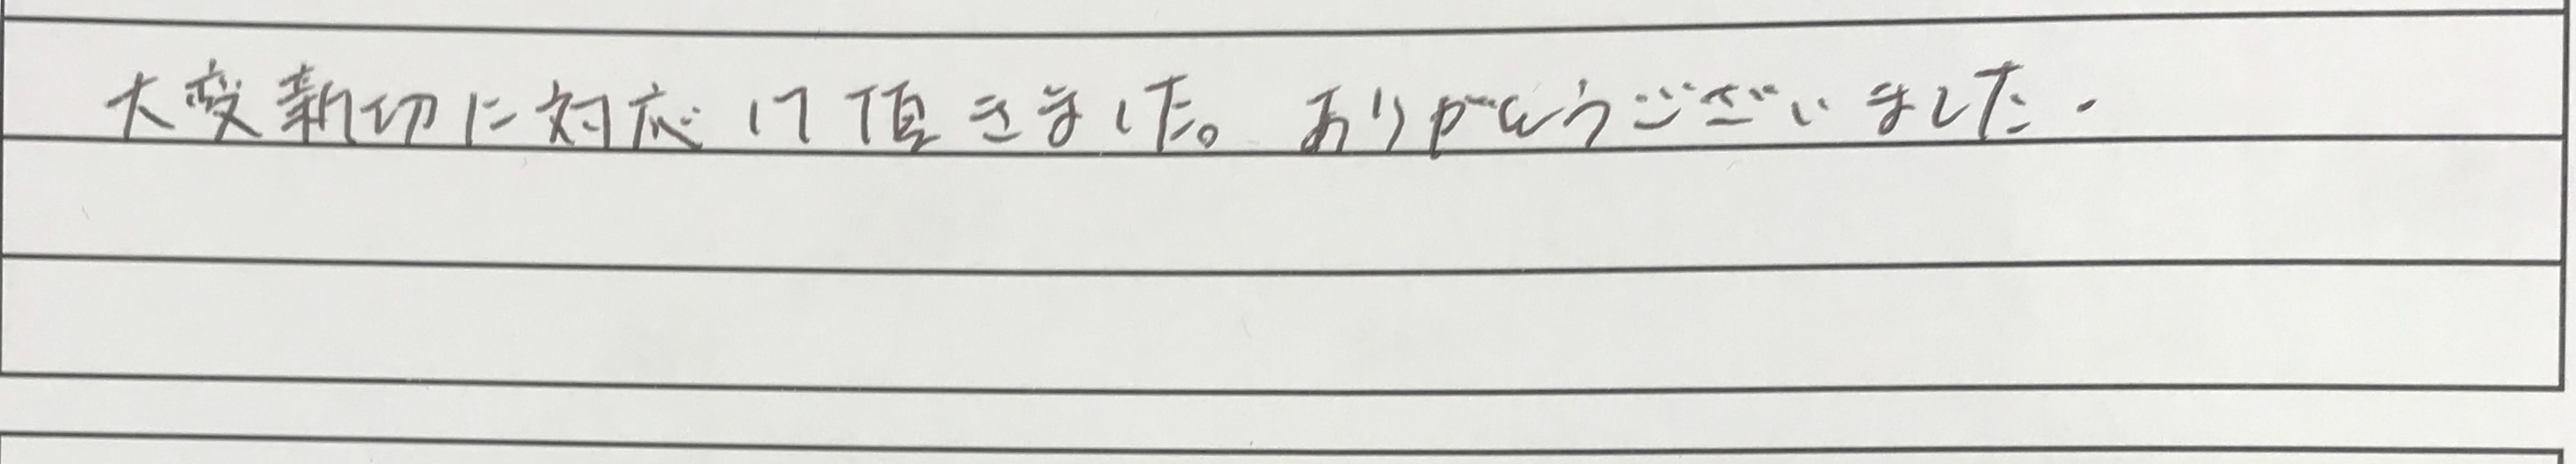 大変親切に対応して頂きました。ありがとうございました.